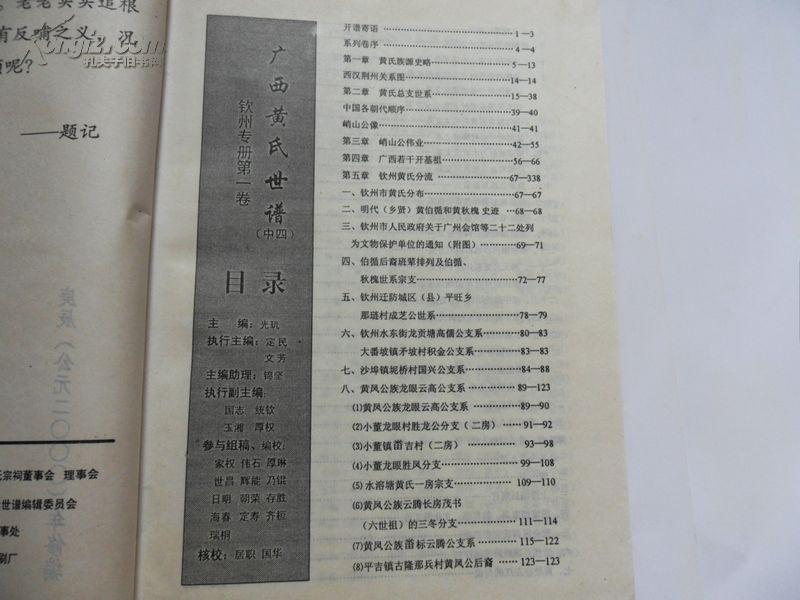 。老老实实追根
有反哺之义，况
顾呢？
——题记
庚辰（公元二〇〇
年修编
氏宗祠董事会 理事会
世谱编辑委员会
事处
刷厂
广西黄氏世谱
（中四）
钦州专册第一卷
目录
主 编：光玑
执行主编：定民
文芳
主编助理：锦坚
执行副主编：
国志 统钦
玉湘 厚权
参与组稿、编校：
家权 伟石 厚琳
世昌 辉能 乃锟
日明 朝荣 存胜
海春 定寿 齐桓
瑞桐
核校：居职 国华
开谱寄语……1—3
系列卷序……4—4
第一章 黄氏族源史略……5—13
西汉荆州关系图……14—14
第二章 黄氏总支世系……15—38
中国各朝代顺序……39—40
峭山公像……41—41
第三章 峭山公伟业……42—55
第四章 广西若干开基祖……56—66
第五章 钦州黄氏分流……67—338
一、钦州市黄氏分布……67—67
二、明代（乡贤）黄伯循和黄秋槐 史迹 …68—68
三、钦州市人民政府关于广州会馆等二十二处列
为文物保护单位的通知（附图）……69—71
四、伯循后裔班辈排列及伯循、
秋槐世系宗支……72—77
五、钦州迁防城区（县）平旺乡
那琏村成芝公世系……78—79
六、钦州水东街龙贡塘高儒公支系……80—83
大番坡镇矛坡村积金公支系……83—83
七、沙埠镇坭桥村国兴公支系……84—88
八、黄凤公族龙眼云高公支系……89—123
⑴黄凤公族龙眼云高公支系……89—90
⑵小董龙眼村胜龙公分支（二房）……91—92
⑶小董镇畓吉村（二房）……93—98
⑷小董龙眼胜凤分支……99—108
⑸水溶塘黄氏一房宗支……109—110
⑹黄凤公族云腾长房茂书
（六世祖）的三冬分支……111—114
⑺黄凤公族畓标云腾公支系……115—122
⑻平吉镇古隆那兵村黄凤公后裔……123—123